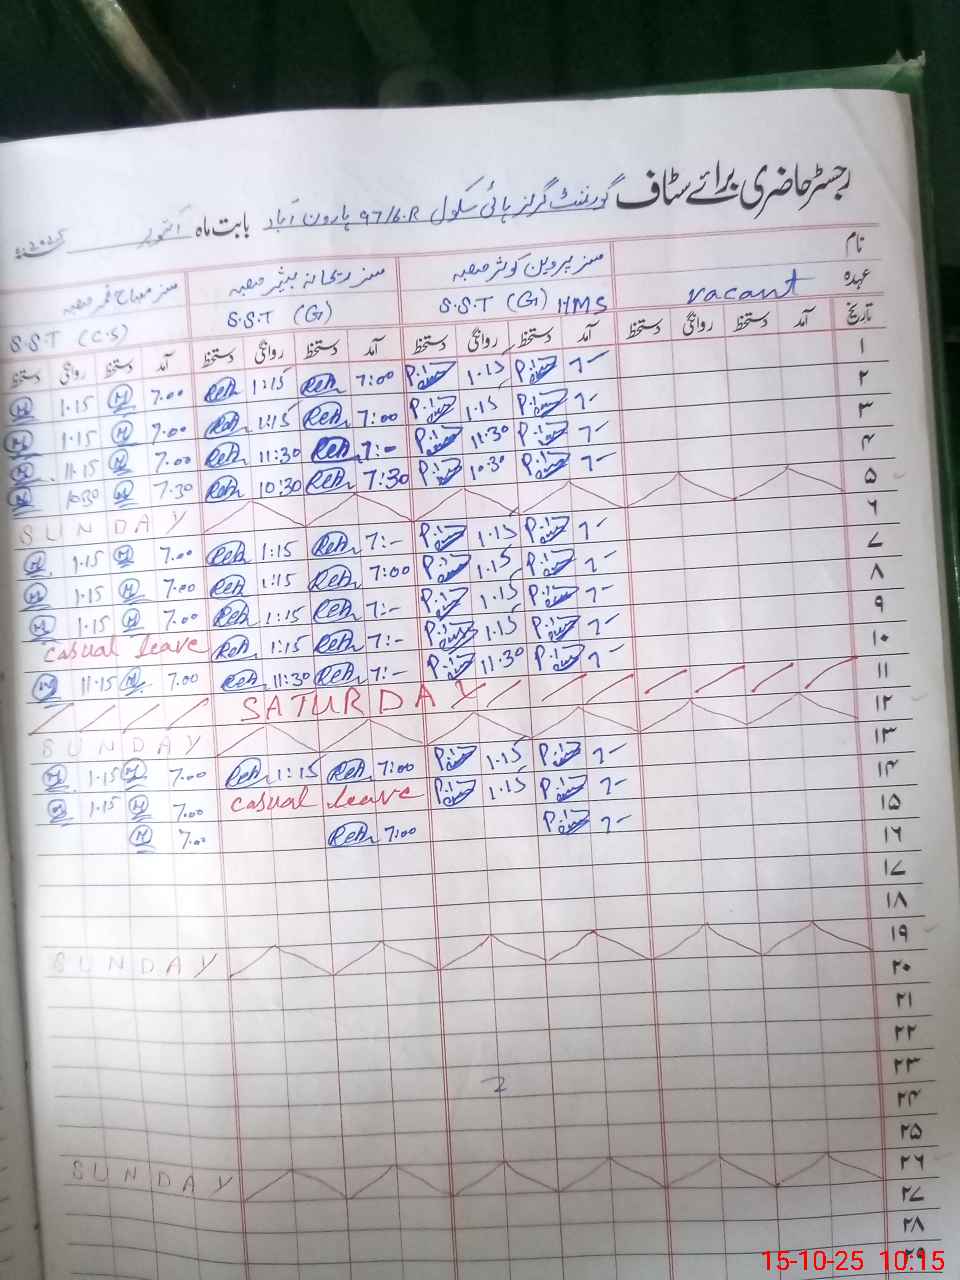 رجسٹر حاضری برائے سٹاف گورنمنٹ گرلز ہائی سکول 97/6.R ہارون آباد بابت ماہ اکتوبر 2025ء
نام مسز پروین کوثر صاحبہ مسز ریحانہ بشیر صاحبہ مسز صباح قمر صاحبہ
عہدہ vacant S.S.T (G) HMS S.S.T (G) S.S.T (C.S)
تاریخ آمد دستخط روانگی دستخط آمد دستخط روانگی دستخط آمد دستخط روانگی دستخط آمد دستخط روانگی دستخط
۱ 7- 1.15 7:00 1:15 7.00 1.15
۲ 7- 1.15 7:00 1:15 7.00 1.15
۳ 7- 11.30 7:- 11:30 7.00 11.15
۴ 7- 10.30 7:30 10:30 7.30 10.30
۵ SUNDAY
۶ 7- 1.15 7:- 1:15 7.00 1.15
۷ 7- 1.15 7:00 1:15 7.00 1.15
۸ 7- 1.15 7:- 1:15 7.00 1.15
۹ 7- 1.15 7:- 1:15 casual leave
۱۰ 7- 11.30 7:- 11:30 7.00 11.15
۱۱ SATURDAY
۱۲ SUNDAY
۱۳ 7- 1.15 7:00 1:15 7.00 1.15
۱۴ 7- 1.15 casual leave 7.00 1.15
۱۵ 7- 7:00 7.00
۱۶
۱۷
۱۸
۱۹ SUNDAY
۲۰
۲۱
۲۲
۲۳
۲۴
۲۵
۲۶ SUNDAY
۲۷
۲۸
۲۹
15-10-25 10:15